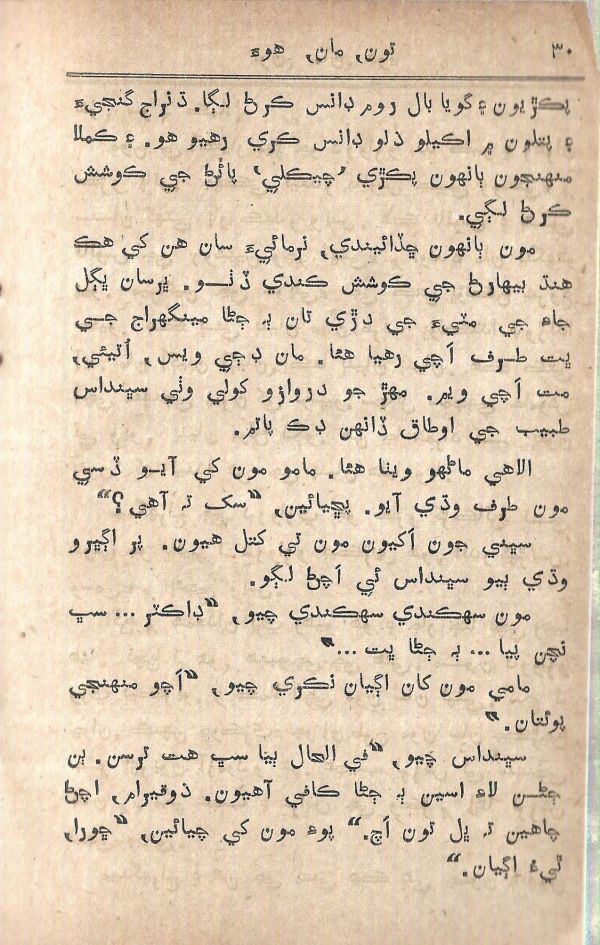 تون، مان، هوءَ ٣٠
پڪڙيون ۽ گويا بال روم ڊانس ڪرڻ لڳا. ڌنراج گنجيءَ
۽ پتلون ۾ اڪيلو ڊانس ڪري رهيو هو. ۽ ڪملا
منهنجون ٻانهون پڪڙي ’چيڪلي‘ پائڻ جي ڪوشش
ڪرڻ لڳي.
مون ٻانهون ڇڏائيندي، نرمائيءَ سان هن کي هڪ
هنڌ بيهارڻ جي ڪوشش ڪندي ڏٺو. ڀرسان ڀڳل
جاءِ جي مٽيءَ جي دڙي تان ٻه ڄڻا مينگهراج جي
ڀت طرف اچي رهيا هئا. مان ڊڄي ويس، اُتيئي،
مت اچي ويم. مهڙ جو دروازو کولي وٺي سڀنداس
طبيب جي اوطاق ڏانهن ڊڪ پاتم.
الاهي ماڻهو ويٺا هئا. مامو مون کي آيو ڏسي
مون طرف وڌي آيو. پڇيائين، ”سک ته آهي؟“
سڀني جون اکيون مون تي کتل هيون. پر اڳيرو
وڌي ٻيو سڀنداس ئي اچڻ لڳو.
مون سهڪندي سهڪندي چيو، ”ڊاڪٽر... سڀ
نچن پيا... ٻه ڄڻا ڀت...“
مامي مون کان اڳيان نڪري چيو، ”اچو منهنجي
پوئتان.“
سڀنداس چيو، ”في الحال ٻيا سڀ هت ترسن. ٻن
ڄڻن لاءِ اسين ٻه ڄڻا ڪافي آهيون. ذوقيرام، اچڻ
چاهين ته ڀل تون اچ.“ پوءِ مون کي چيائين، ”ڇورا،
ٿيءُ اڳيان.“